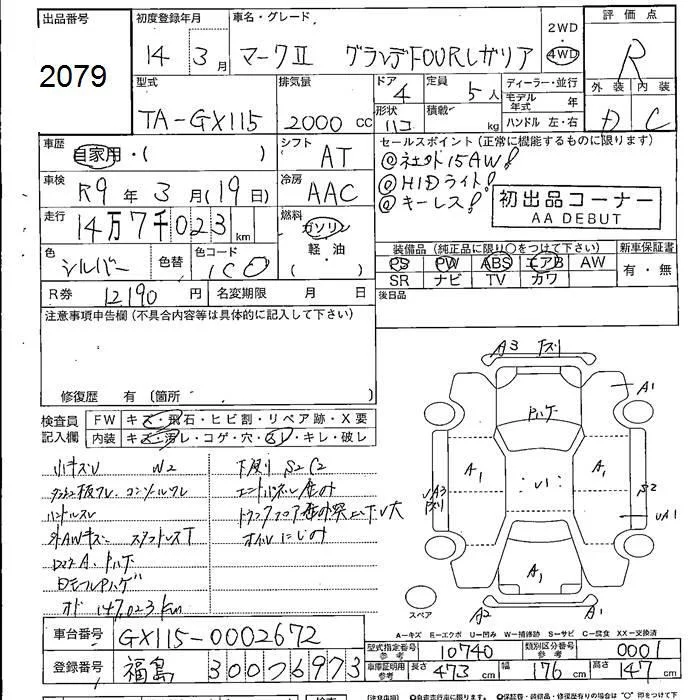 出品番号 初度登録年月 車名・グレード 2WD・4WD 評価点
2079 14年3月 マークⅡ グランデFOURレガリア R
外装 内装
D C
型式 排気量 ドア 4 定員 5人 ディーラー・並行
TA-GX115 2000cc 形状 ハコ 積載 kg モデル年式 年
ハンドル 左・右
車歴 自家用・( ) シフト AT
セールスポイント(正常に機能するものに限ります)
◎社外15AW!
◎HIDライト!
◎キーレス!
初出品コーナー
AA DEBUT
車検 R9年3月(19日) 冷房 AAC
走行 14万7千023km 燃料 ガソリン・軽油・( )
色 シルバー 色替 色コード 1C0
装備品(純正品に限り○をつけて下さい) 新車保証書
PS PW ABS エアB AW 有・無
SR ナビ TV カワ
R券 12190円 名変期限 月 日
後日品
注意事項申告欄(不具合内容等は具体的に記入して下さい)
修復歴 有 (箇所
検査員記入欄 FW キズ・飛石・ヒビ割・リペア跡・X要
内装 キズ・汚レ・コゲ・穴・スレ・キレ・破レ
小キズU W2 下廻り S2 C2
コンソールワレ
ハンドルスレ
外AWキズ スタッドレスT オイルにじみ
オド 147,023km
A3 A1 A1 A1 U1 UA3 S2 UA1 A1 A2 A1
スペア
A−キズ E−エクボ U−凹み W−補修跡 S−サビ C−腐食 XX−交換済
車台番号 GX115-0002672
型式指定番号 参考 10740 類別区分番号 参考 0001
登録番号 福島 300 つ 6973
車庫証明用 参考 長さ 473cm 幅 176cm 高さ 147cm